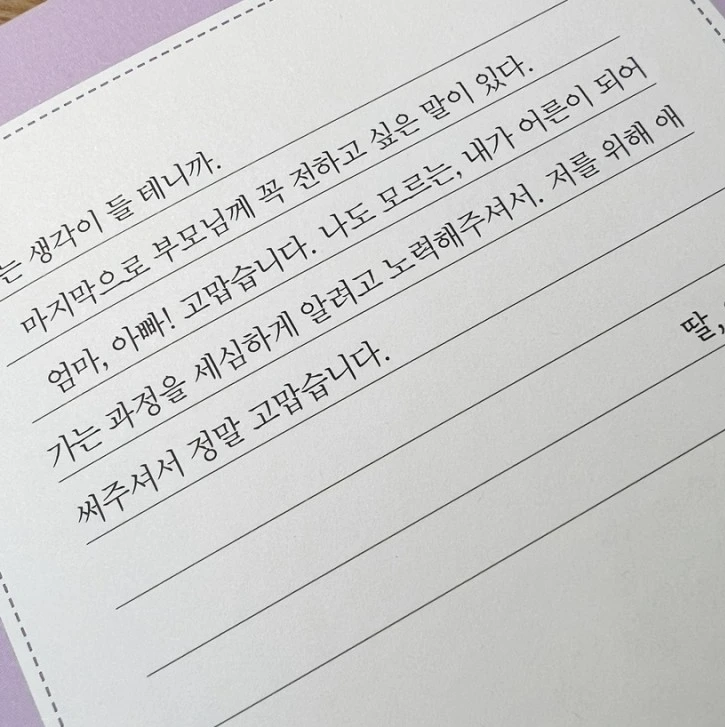 는 생각이 들 테니까.
마지막으로 부모님께 꼭 전하고 싶은 말이 있다.
엄마, 아빠! 고맙습니다. 나도 모르는, 내가 어른이 되어
가는 과정을 세심하게 알려고 노력해주셔서. 저를 위해 애
써주셔서 정말 고맙습니다.
딸,